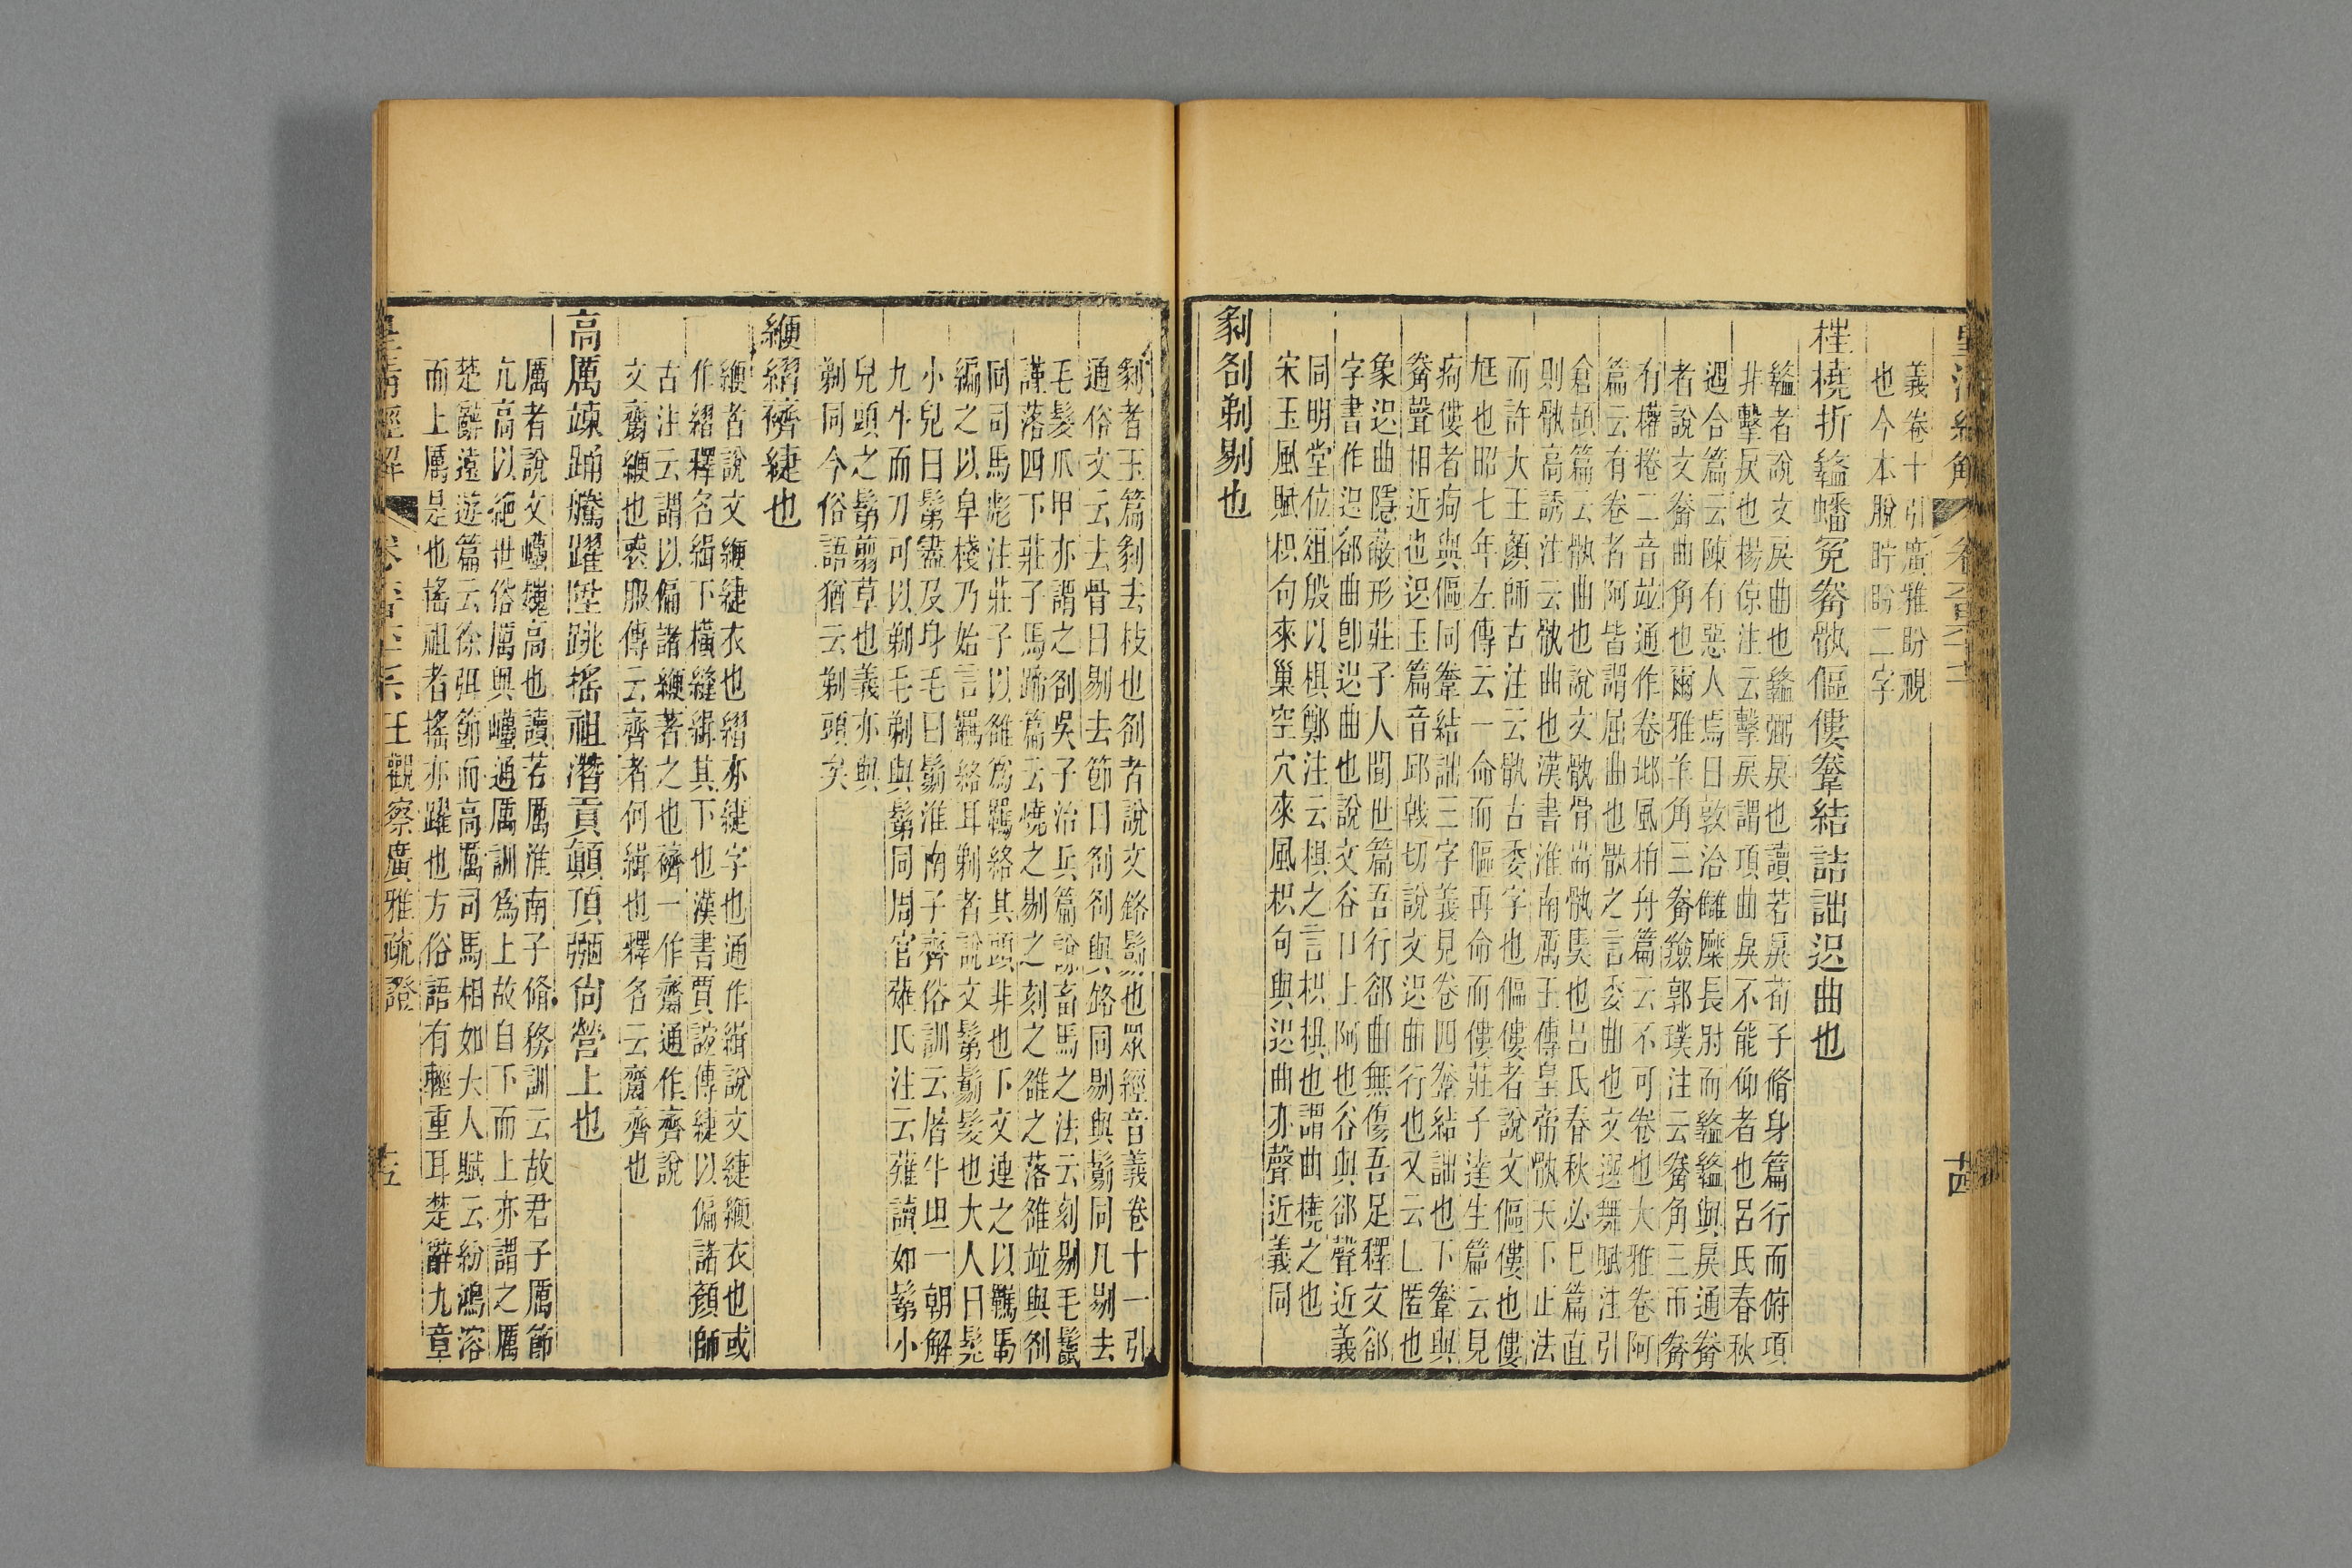 義卷十引廣雅盼視
也今本脫盱盼二字
桂橈折盭蟠冤觠骫傴僂𢍏結詰詘迟曲也
盭者說文戾曲也盭弼戾也讀若戾荀子脩身篇行而俯項
非擊戾也楊倞注云擊戾謂項曲戾不能仰者也呂氏春秋
遇合篇云陳有惡人焉曰敦洽讎麋長肘而盭盭與戾通觠
者說文觠曲角也爾雅羊角三觠羷郭璞注云觠角三帀觠
有權捲二音竝通作卷邶風柏舟篇云不可卷也大雅卷阿
篇云有卷者阿皆謂屈曲也骫之言委曲也文選舞賦注引
倉頡篇云骫曲也說文骫骨耑骫奊也呂氏春秋必巳篇直
則骫高誘注云骫曲也漢書淮南厲王傳皇帝骫天下正法
而許大王顏師古注云骫古委字也傴僂者說文傴僂也僂
尪也昭七年左傳云一命而傴再命而僂莊子達生篇云見
痀僂者痀與傴同𢍏結詘三字義見卷四𢍏結詘也下𢍏與
觠聲相近也迟玉篇音邱戟切說文迟曲行也又云乚匿也
象迟曲隱蔽形莊子人閒世篇吾行郤曲無傷吾足釋文郤
字書作迟郤曲卽迟曲也說文谷口上阿也谷與郤聲近義
同明堂位俎殷以椇鄭注云椇之言枳椇也謂曲橈之也
宋玉風賦枳句來巢空穴來風枳句與迟曲亦聲近義同
剝㓣剃剔也
剝者玉篇剝去枝也㓣者說文鉻鬄也眾經音義卷十一引
通俗文云去骨曰剔去節曰㓣㓣與鉻同剔與鬄同凡剔去
毛髮爪甲亦謂之㓣吳子治兵篇說畜馬之法云刻剔毛鬣
謹落四下莊子馬蹄篇云燒之剔之刻之雒之落雒竝與㓣
同司馬彪注莊子以雒爲羈絡其頭非也下文連之以羈馽
編之以皁棧乃始言羈絡耳剃者說文鬀鬄髮也大人曰髡
小兒曰鬀盡及身毛曰鬄淮南子齊俗訓云屠牛坦一朝解
九牛而刀可以剃毛剃與鬀同周官薙氏注云薙讀如鬀小
兒頭之鬀翦草也義亦與
剃同今俗語猶云剃頭矣
緶緝䙺緁也
緶者說文緶緁衣也緝亦緁字也通作緝說文緁緶衣也或
作緝釋名緝下橫縫緝其下也漢書賈誼傳緁以偏諸顏師
古注云謂以偏諸緶著之也䙺一作齌通作齊說
文齌緶也喪服傳云齊者何緝也釋名云齌齊也
高厲竦踊騰躍陞跳搖祖濳貢顛頂𢐧尙營上也
厲者說文巁巍高也讀若厲淮南子脩務訓云故君子厲節
亢高以絶世俗厲與巁通厲訓爲上故自下而上亦謂之厲
楚辭遠遊篇云徐弭節而高厲司馬相如大人賦云紛鴻溶
而上厲是也搖祖者搖亦躍也方俗語有輕重耳楚辭九章
皇清經解
王觀察廣雅疏證